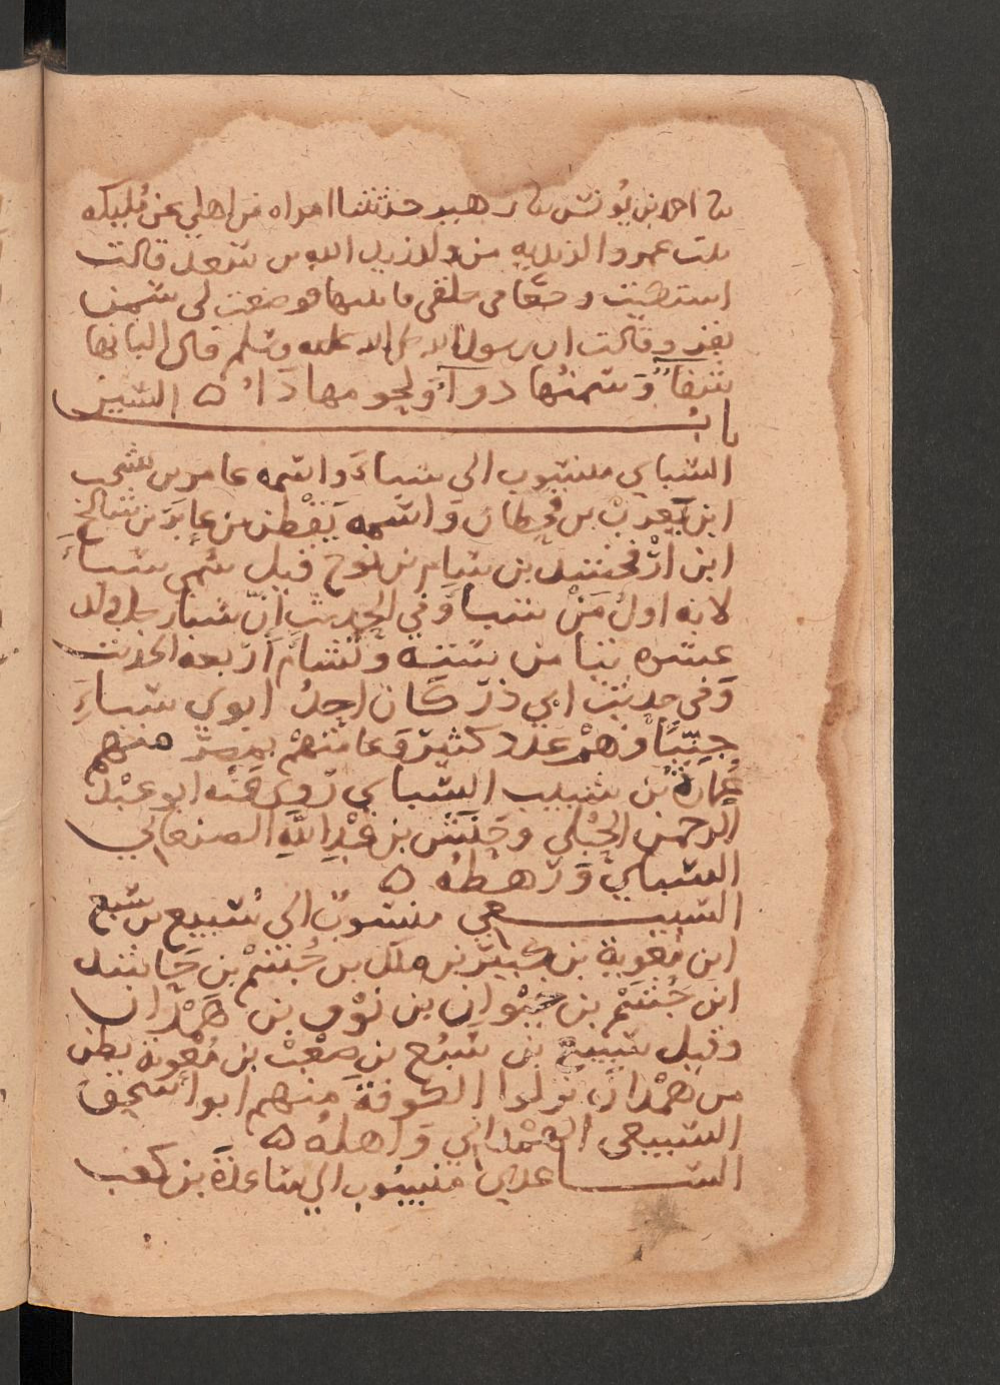 نا احمد بن يونس نا زهير حدثتنا امراه من اهلي عن مليكه
بنت عمرو الزيديه من ولد زيد الله بن سعد قالت
اشتكيت وجعا في حلقي فاتيتها فوضعت لي سمن
بقر وقالت ان رسول الله صلى الله عليه وسلم قال البانها
شفاء وسمنها دواء ولحومها داء ه السين
باب
السباي منسوب الى سباء واسمه عامر بن يشجب
ابن يعرب بن قحطان واسمه يقطن بن عابر بن شالخ
ابن ارفخشد بن سام بن نوح قيل سمي سباء
لانه اول من سبا وفي الحديث ان سبا رجل ولد
عشره تيامن سته وتشام اربعه الحديث
وفي حديث ابي ذر كان احد ابوي سباء
جنيا وهم عدد كثير وعامتهم بمصر منهم
عمارة بن شبيب السباي روى عنه ابو عبد
الرحمن الحبلي وحنش بن عبد الله الصنعاني
السباي ورهطه ه
السبيعي منسوب الى سبيع بن سبع
ابن معوية بن كبير بن ملك بن جشم بن حاشد
ابن جشم بن خيوان بن نوف بن همدان
وقيل سبيع بن سبع بن صعب بن معوية بطن
من همدان نزلوا الكوفة منهم ابو اسحق
السبيعي الهمداني واهله ه
الساعدي منسوب الى ساعدة بن كعب